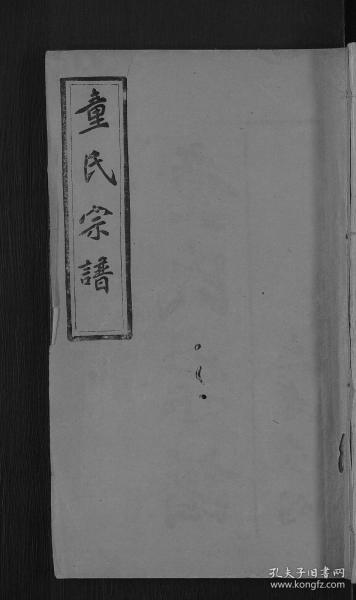 童氏宗譜
孔夫子旧书网
www.kongfz.com